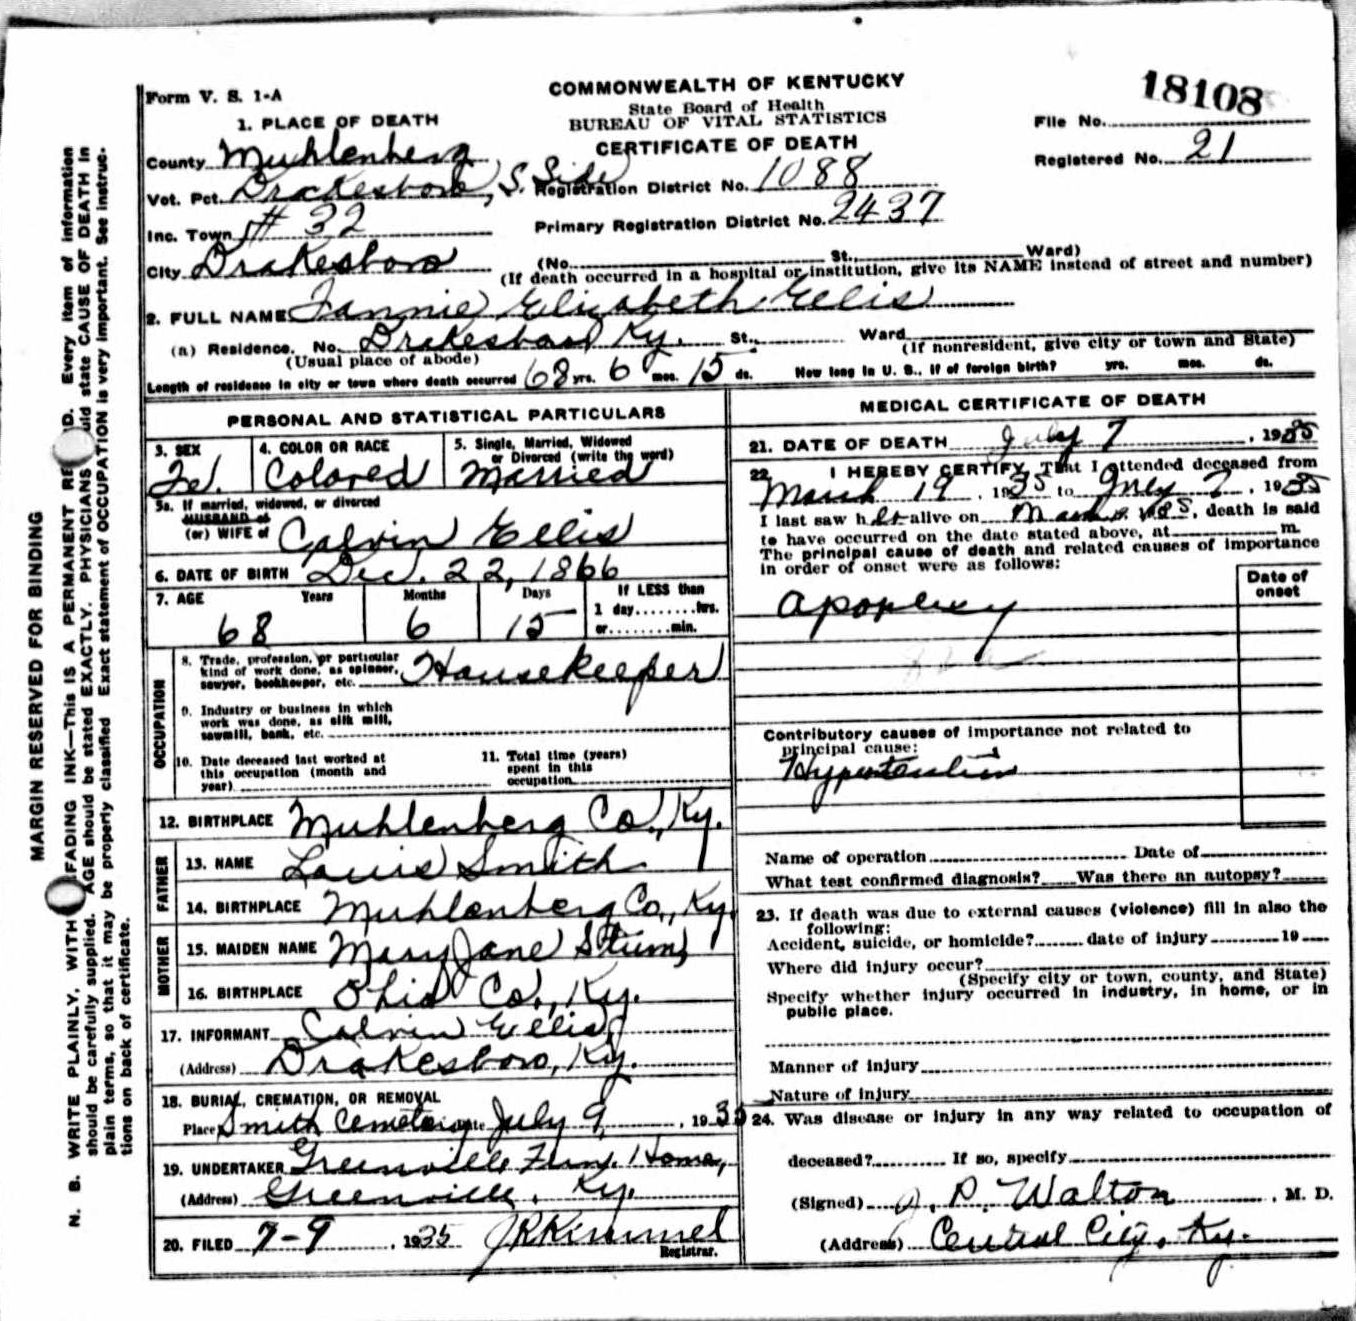 18108
Form V. S. 1-A
COMMONWEALTH OF KENTUCKY
State Board of Health
BUREAU OF VITAL STATISTICS
CERTIFICATE OF DEATH
File No.
Registered No. 21
1. PLACE OF DEATH
County Muhlenberg
Vot. Pct. Drakesboro, S. Side
Registration District No. 1088
Inc. Town # 32
Primary Registration District No. 2437
City Drakesboro
(No. St., Ward)
(If death occurred in a hospital or institution, give its NAME instead of street and number)
2. FULL NAME Fannie Elizabeth Ellis
(a) Residence. No. Drakesboro Ky. St., Ward
(Usual place of abode)
(If nonresident, give city or town and State)
Length of residence in city or town where death occurred 68 yrs. 6 mos. 15 ds. How long in U. S., if of foreign birth? yrs. mos. ds.
PERSONAL AND STATISTICAL PARTICULARS
3. SEX Fe.
4. COLOR OR RACE Colored
5. Single, Married, Widowed
or Divorced (write the word)
Married
5a. If married, widowed, or divorced
HUSBAND of
(or) WIFE of Calvin Ellis
6. DATE OF BIRTH Dec. 22, 1866
7. AGE Years Months Days If LESS than
1 day hrs.
or min.
68 6 15
OCCUPATION
8. Trade, profession, or particular
kind of work done, as spinner,
sawyer, bookkeeper, etc. Housekeeper
9. Industry or business in which
work was done, as silk mill,
sawmill, bank, etc.
10. Date deceased last worked at
this occupation (month and
year)
11. Total time (years)
spent in this
occupation
12. BIRTHPLACE Muhlenberg Co., Ky.
FATHER
13. NAME Louis Smith
14. BIRTHPLACE Muhlenberg Co., Ky.
MOTHER
15. MAIDEN NAME Mary Jane Stum
16. BIRTHPLACE Ohio Co., Ky.
17. INFORMANT Calvin Ellis
(Address) Drakesboro, Ky.
18. BURIAL, CREMATION, OR REMOVAL
Place Smith Cemetery Date July 9, 1935
19. UNDERTAKER Greenville Fun. Home,
(Address) Greenville, Ky.
20. FILED 7-9, 1935 JRKimmel
Registrar.
MEDICAL CERTIFICATE OF DEATH
21. DATE OF DEATH July 7, 1935
22. I HEREBY CERTIFY, That I attended deceased from
March 19, 1935 to July 7, 1935
I last saw her alive on March, death is said
to have occurred on the date stated above, at m.
The principal cause of death and related causes of importance
in order of onset were as follows:
Date of
onset
apoplexy
Contributory causes of importance not related to
principal cause:
Hypertension
Name of operation Date of
What test confirmed diagnosis? Was there an autopsy?
23. If death was due to external causes (violence) fill in also the
following:
Accident, suicide, or homicide? date of injury 19
Where did injury occur?
(Specify city or town, county, and State)
Specify whether injury occurred in industry, in home, or in
public place.
Manner of injury
Nature of injury
24. Was disease or injury in any way related to occupation of
deceased? If so, specify
(Signed) J. P. Walton, M. D.
(Address) Central City, Ky.
MARGIN RESERVED FOR BINDING
N. B. WRITE PLAINLY, WITH FADING INK—This is A PERMANENT RE D. Every item of information
should be carefully supplied. AGE should be stated EXACTLY. PHYSICIANS uld state CAUSE OF DEATH in
plain terms, so that it may be properly classified. Exact statement of OCCUPATION is very important. See instruc-
tions on back of certificate.